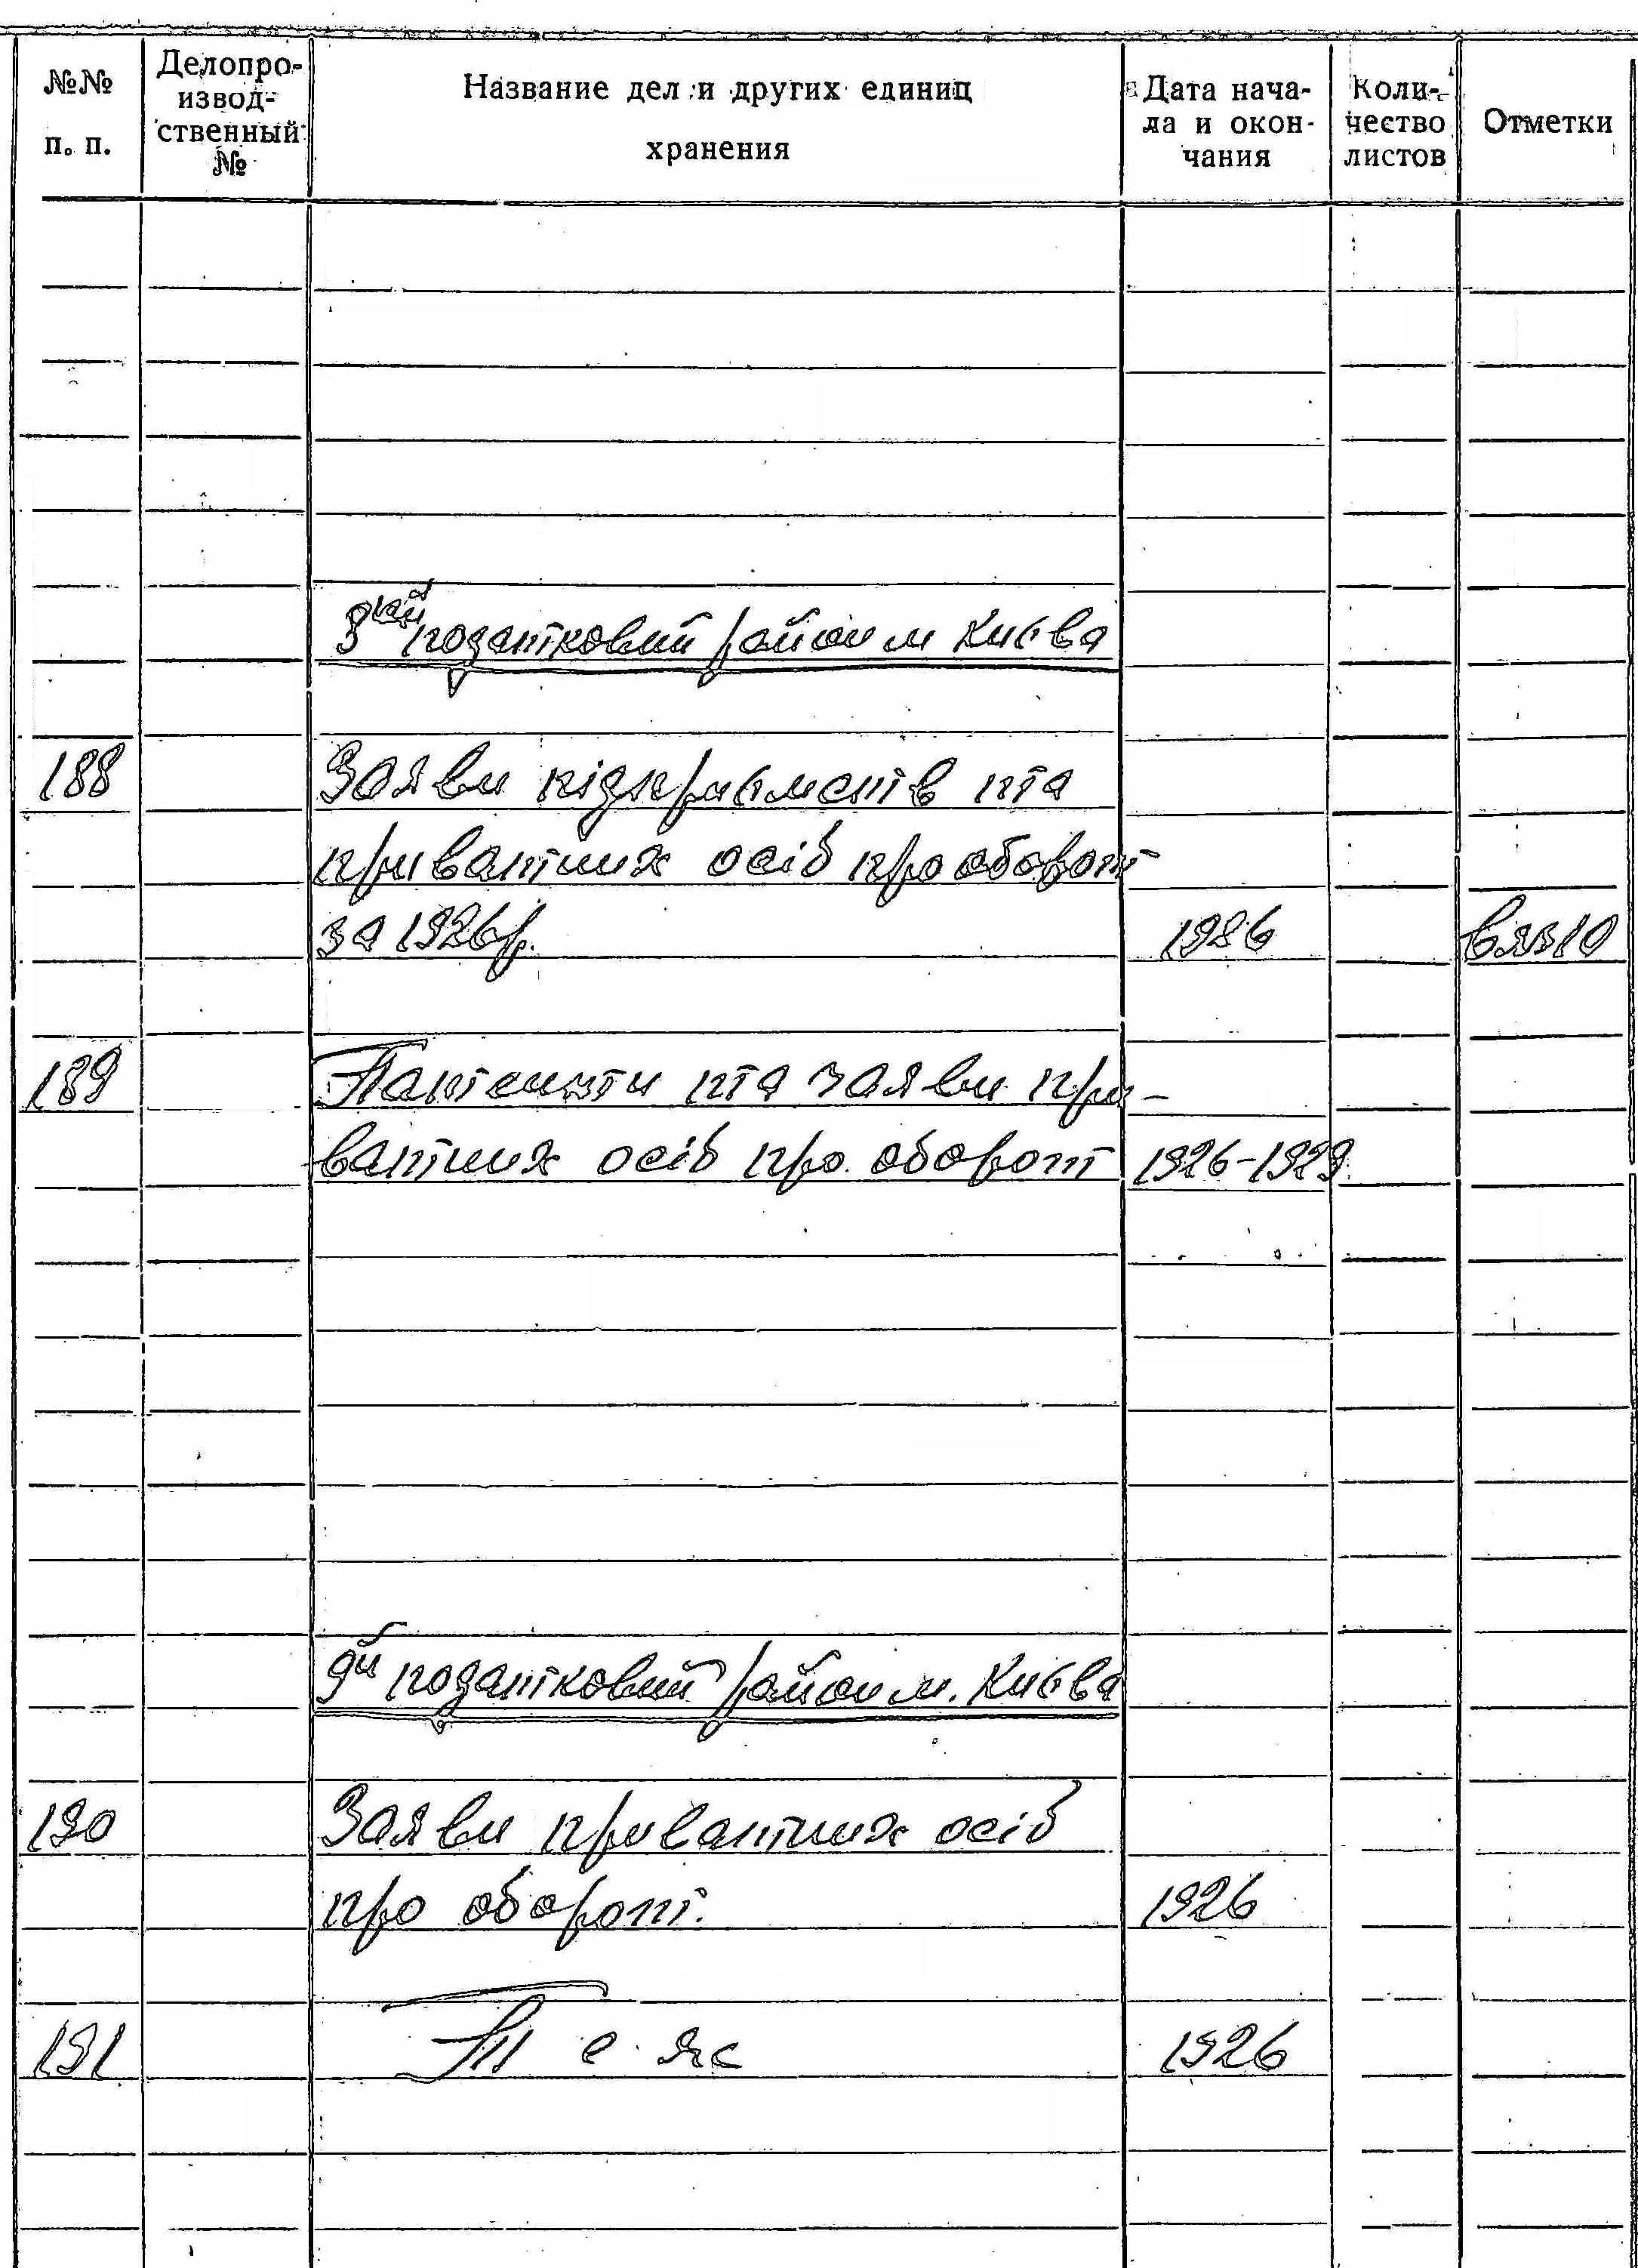 №№ п. п.
Делопро-
извод-
ственный
№
Название дел и других единиц
хранения
Дата нача-
ла и окон-
чания
Коли-
чество
листов
Отметки
податковий район м Києва
188 Заяви підприємств та
приватних осіб про оборот
за 1926 р. 1926 вяз 10
189 Патенти та заяви при-
ватних осіб про оборот 1926-1929
9й податковий район м. Києва
190 Заяви приватних осіб
про оборот. 1926
191 Теж 1926